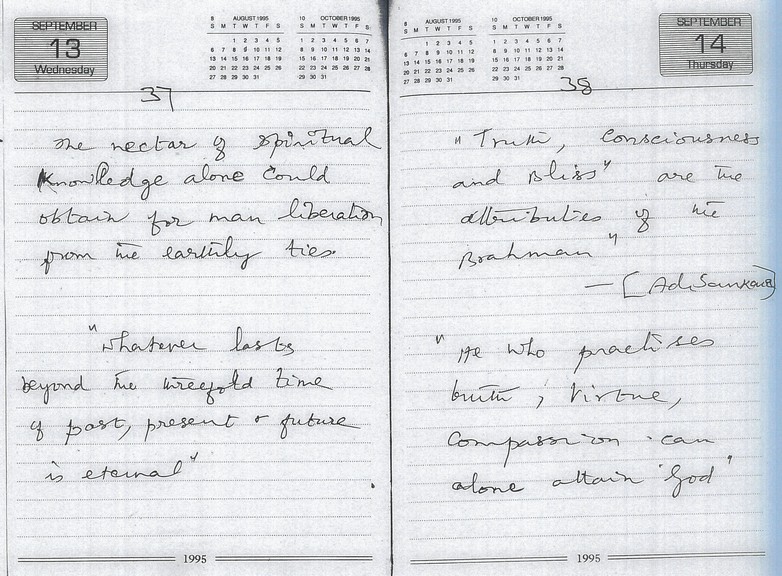 SEPTEMBER
13
Wednesday
8 AUGUST 1995
S M T W T F S
1 2 3 4 5
6 7 8 9 10 11 12
13 14 15 16 17 18 19
20 21 22 23 24 25 26
27 28 29 30 31
10 OCTOBER 1995
S M T W T F S
1 2 3 4 5 6 7
8 9 10 11 12 13 14
15 16 17 18 19 20 21
22 23 24 25 26 27 28
29 30 31
37
The nectar of spiritual
Knowledge alone could
obtain for man liberation
from the earthly ties.
"Whatever lasts
beyond the threefold time
of past, present & future
is eternal"
1995
8 AUGUST 1995
S M T W T F S
1 2 3 4 5
6 7 8 9 10 11 12
13 14 15 16 17 18 19
20 21 22 23 24 25 26
27 28 29 30 31
10 OCTOBER 1995
S M T W T F S
1 2 3 4 5 6 7
8 9 10 11 12 13 14
15 16 17 18 19 20 21
22 23 24 25 26 27 28
29 30 31
SEPTEMBER
14
Thursday
38
"Truth, Consciousness
and Bliss" are the
attributies of the
Brahman"
— [AdiSankara]
"He who practises
truth, Virtue,
Compassion can
alone attain God"
1995